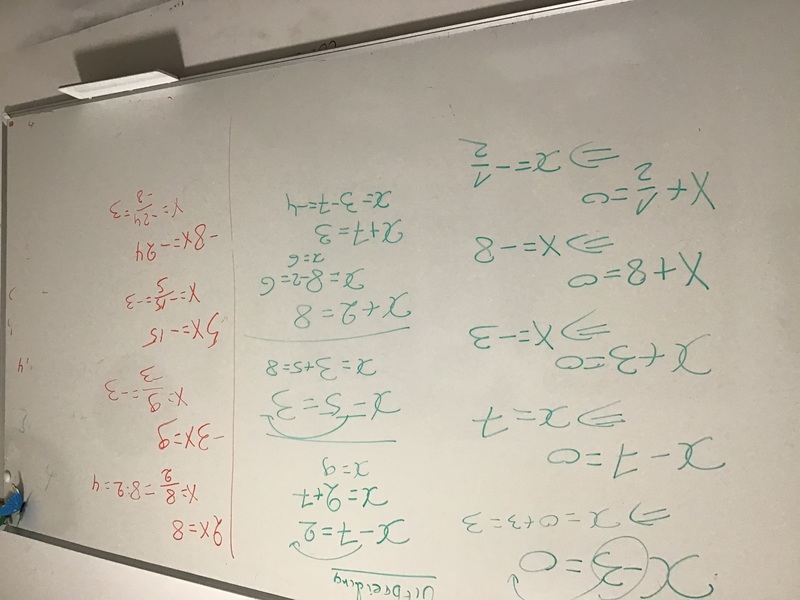 x-3=0
⇒ x=0+3=3
x-7=0
⇒ x=7
x+3=0
⇒ x=-3
x+8=0
⇒ x=-8
x+1/2=0
⇒ x=-1/2
Uitbreiding
x-7=2
x=2+7
x=9
x-5=3
x=3+5=8
x+2=8
x=8-2=6
x=6
x+7=3
x=3-7=-4
2x=8
x=8/2=8:2=4
-3x=9
x=9/3=-3
5x=-15
x=-15/5=-3
-8x=-24
x=-24/-8=3